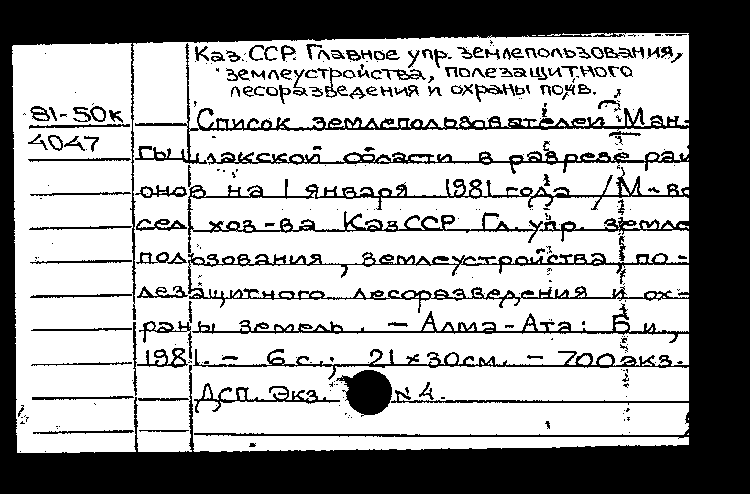 Каз.ССР. Главное упр. землепользования,
землеустройства, полезащитного
лесоразведения и охраны почв.
81-50к
4047
Список землепользователей Ман-
гышлакской области в разрезе рай
онов на 1 января 1981 года /М-во
сел хоз-ва КазССР. Гл. упр. земле
пользования, землеустройства, по-
лезащитного лесоразведения и ох-
раны земель. - Алма-Ата: Б.и.,
1981. - 6 с.; 21×30см. - 700экз.
ДСП. Экз. N 4.